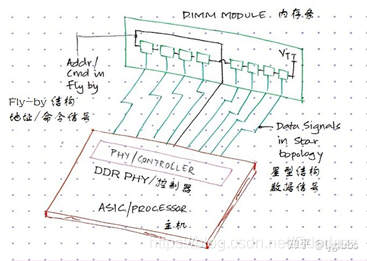 DIMM MODULE 内存条
Addr/
Cmd in
Fly by
VTT
Fly-by 结构
地址/命令信号
Data Signals
in Star
topology
星型结构
数据信号
PHY/CONTROLLER
DDR PHY/控制器
ASIC/PROCESSOR
主机